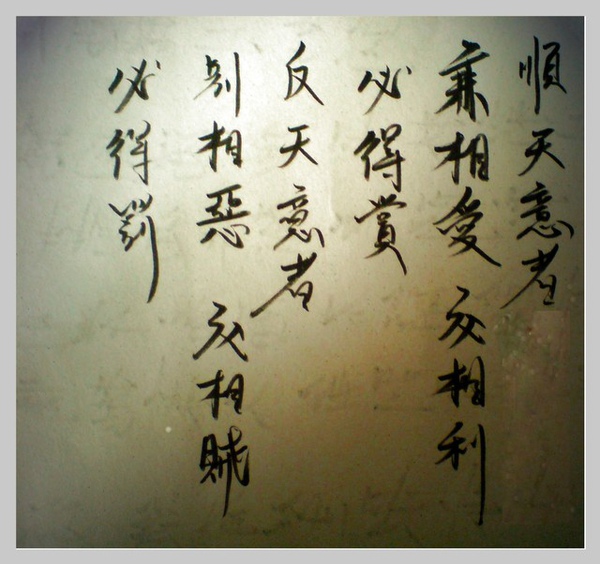 順天意者
兼相愛 交相利
必得賞
反天意者
別相惡 交相賊
必得罰